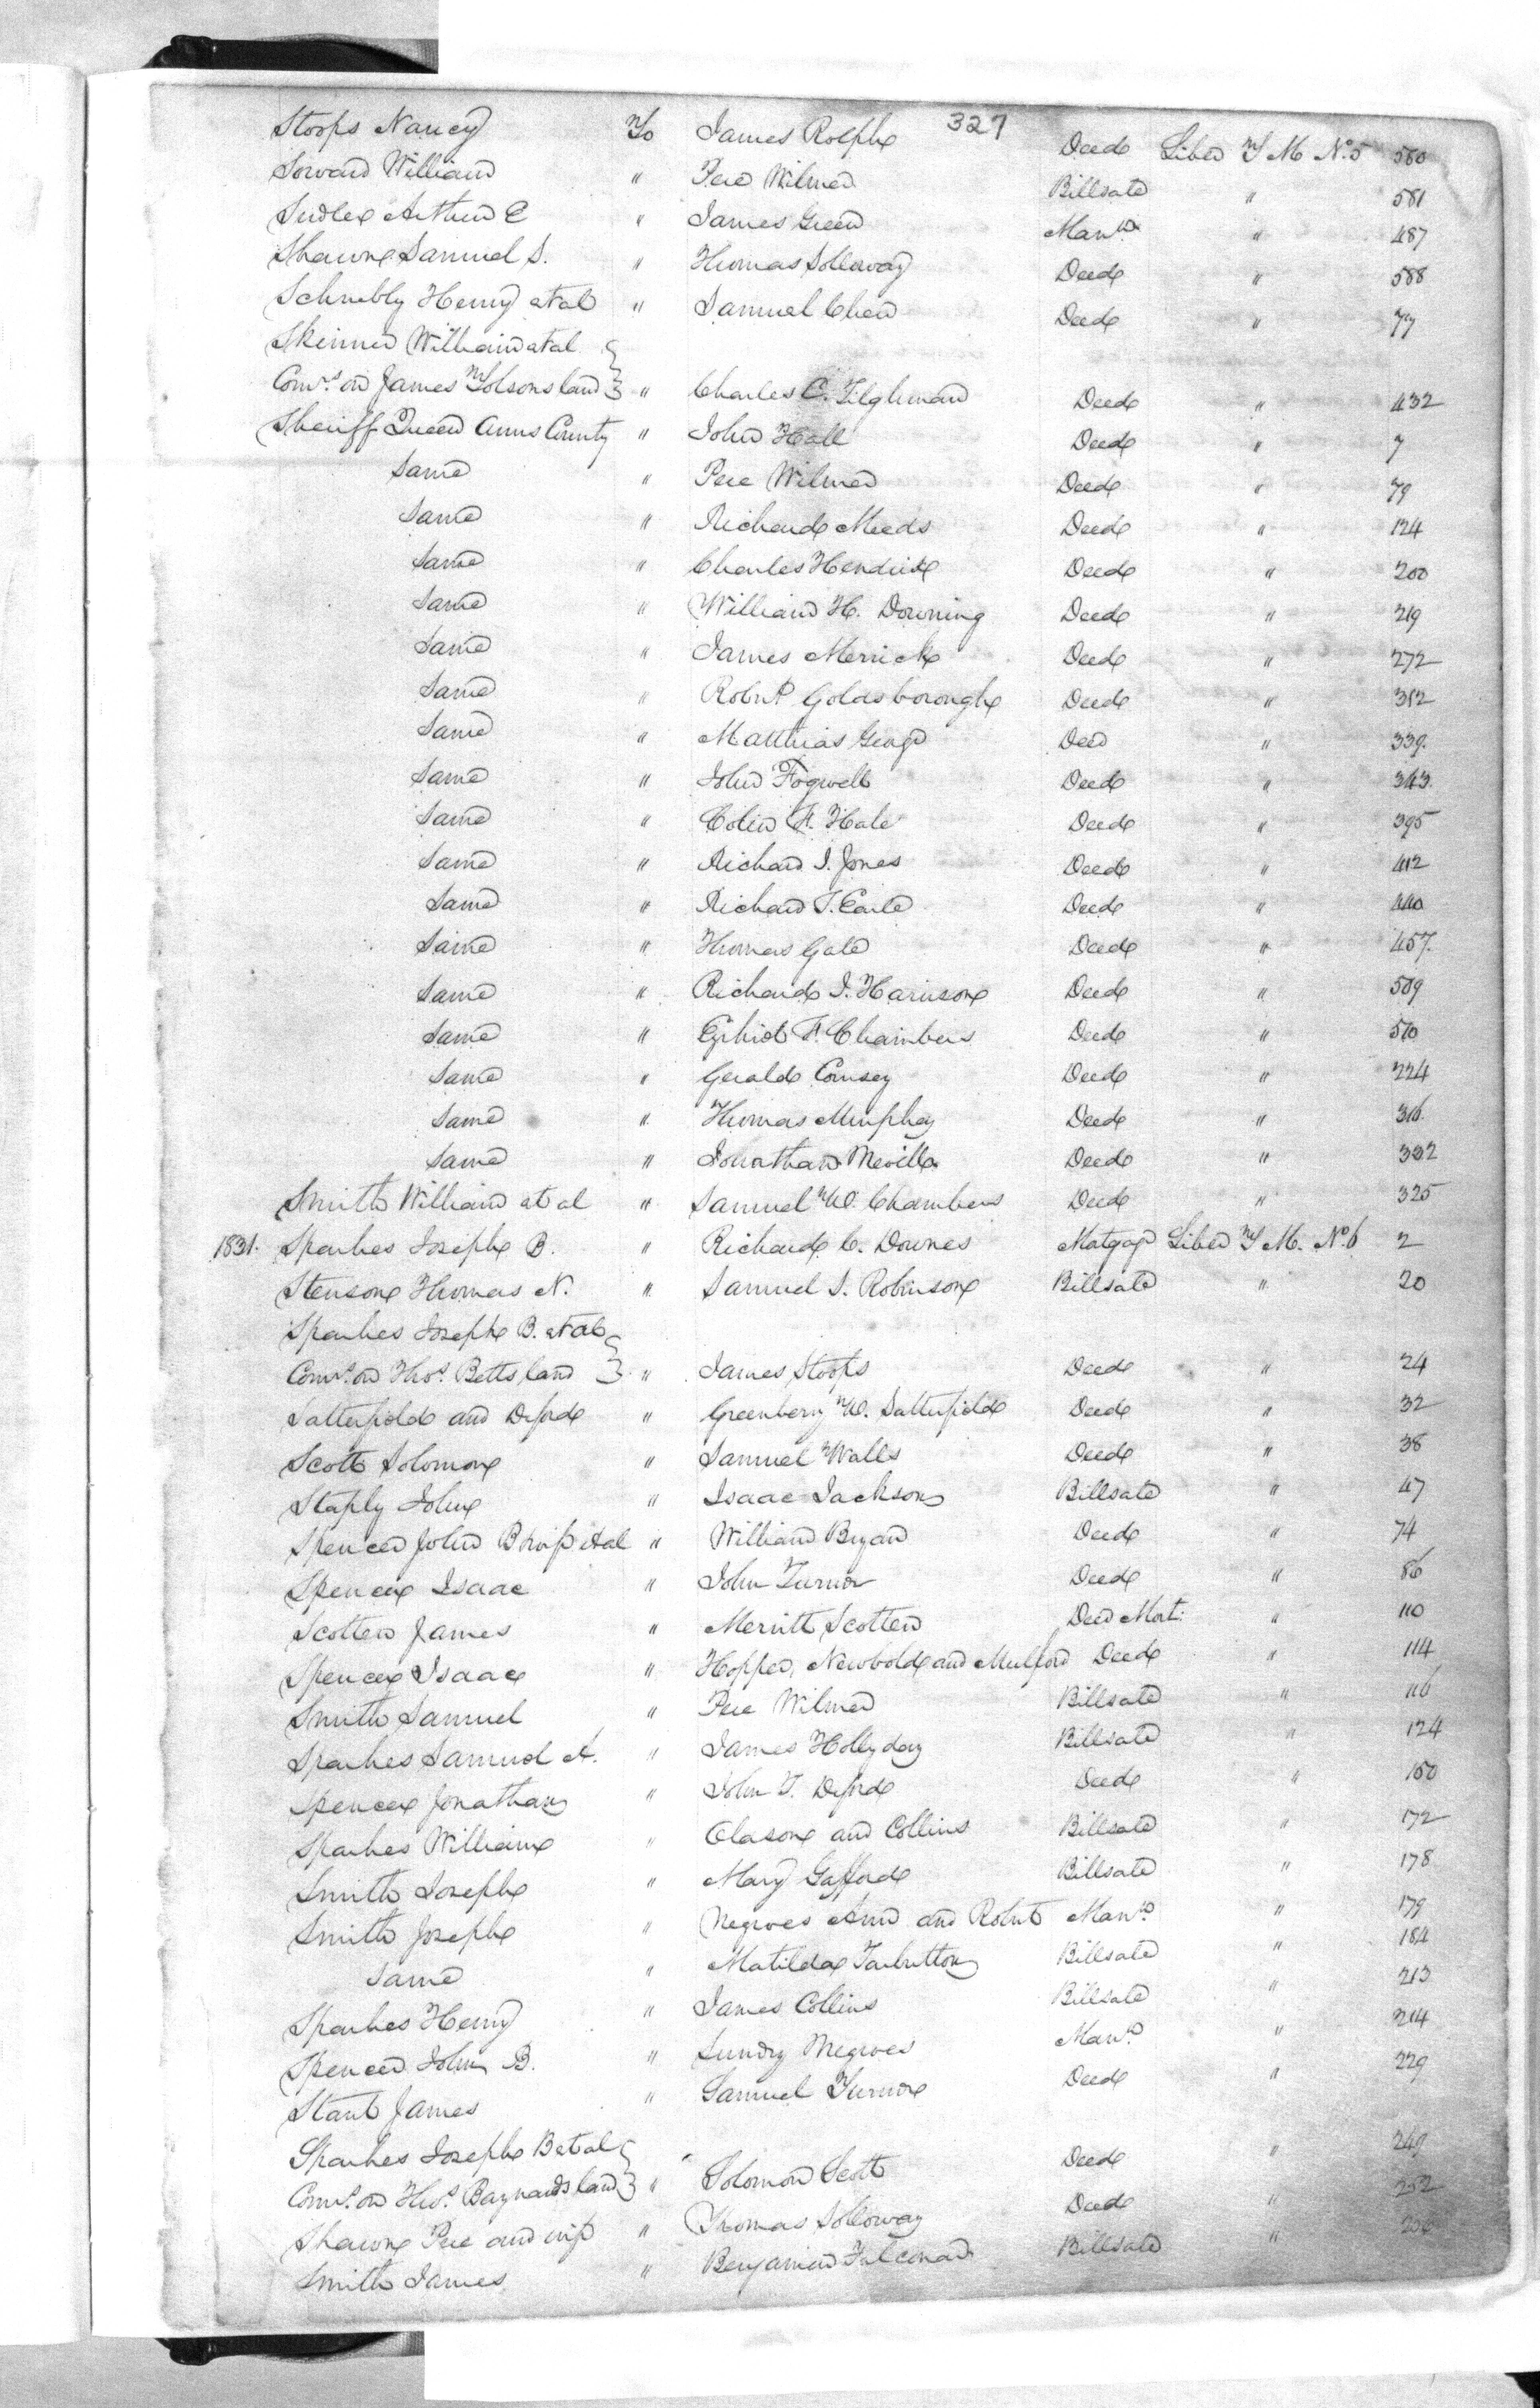 327
Stoops Nancy To James Rolph Deed Liber T M No. 5 580
Soward William " Pere Wilmer Billsale " 581
Sudler Arthur E " James Green Mann. " 487
Shawn Samuel S. " Thomas Solloway Deed " 588
Schnebly Henry et al " Samuel Chew Deed " 77
Skinner William et al
Comrs. on James Tolsons land " Charles C. Tilghman Deed " 432
Sheriff Queen Anns County " John Hall Deed " 7
Same " Pere Wilmer Deed " 79
Same " Richard Meeds Deed " 124
Same " Charles Hendrix Deed " 200
Same " William H. Downing Deed " 219
Same " James Merrick Deed " 272
Same " Robert Goldsborough Deed " 312
Same " Matthias George Deed " 339.
Same " John Fogwell Deed " 343.
Same " Colin F. Hale Deed " 395
Same " Richard I. Jones Deed " 412
Same " Richard T. Earle Deed " 440
Same " Thomas Gale Deed " 457.
Same " Richard I. Harrison Deed " 509
Same " F. Chambers Deed " 510
Same " Gerald Coursey Deed " 224
Same " Thomas Murphey Deed " 316.
Same " Jonathan Nevill Deed " 332
Smith William et al " Samuel W. Chambers Deed " 325
1831. Sparkes Joseph B. " Richard C. Downes Motgage Liber T M. No. 6 2
Stenson Thomas N. " Samuel S. Robinson Billsale " 20
Sparkes Joseph B. et al
Comrs. on Thos. Betts land " James Stoops Deed " 24
Satterfield and Deford " Greenberry W. Satterfield Deed " 32
Scott Solomon " Samuel Walls Deed " 38
Staply John " Isaac Jackson Billsale " 47
Spencer John B wife et al " William Bryan Deed " 74
Spencer Isaac " John Turner Deed " 86
Scotten James " Merritt Scotten Deed Mort: " 110
Spencer Isaac " Hopper, Newbold and Mulford Deed " 114
Smith Samuel " Pere Wilmer Billsale " 116
Sparkes Samuel A. " James Hollyday Billsale " 124
Spencer Jonathan " John T. Deford Deed " 150
Sparkes William " Clason and Collins Billsale " 172
Smith Joseph " Mary Gafford Billsale " 178
Smith Joseph " Negroes Ann and Robert Mann. " 179
Same " Matilda Tarbutton Billsale " 184
Sparkes Henry " James Collins Billsale " 213
Spencer John B. " Sundry Negroes Mann. " 214
Stant James " Samuel Turner Deed " 229
Sparkes Joseph B et al
Comrs. on Thos. Baynards land " Solomon Scott Deed " 249
Shawn Pere and wife " Thomas Solloway Deed " 252
Smith James " Benjamin Falconar Billsale "